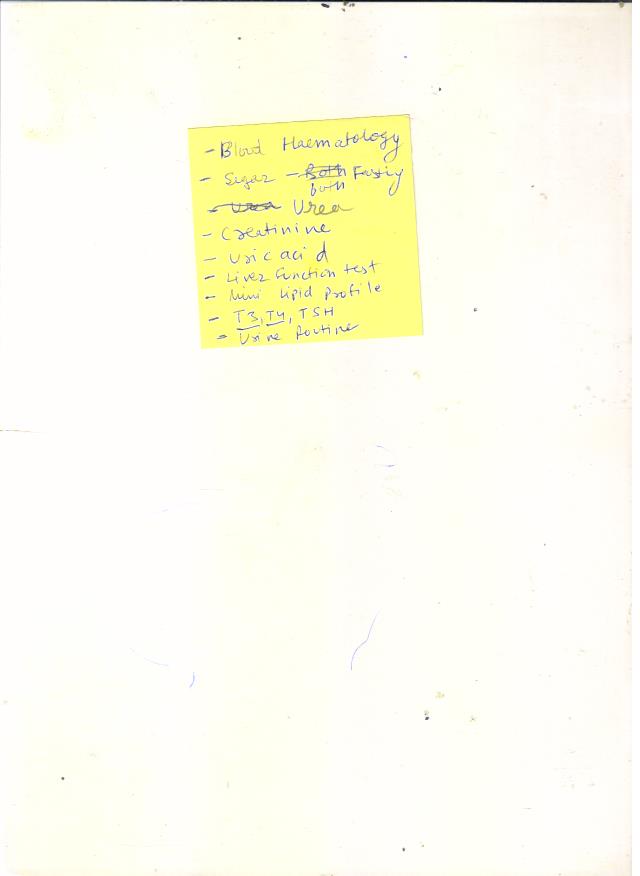 - Blood Haematology
- Sugar - Both Fasting
both
- Urea Urea
- Creatinine
- Uric acid
- Liver Function test
- Mini Lipid Profile
- T3, T4, TSH
- Urine Routine